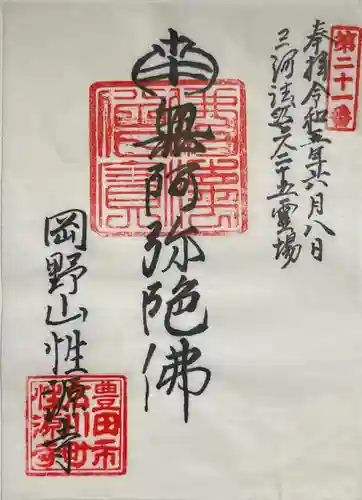 第二十一番
奉拝令和五年六月八日
三河法然上人二十五靈場
南無阿弥陀佛
岡野山性源寺
豊田市
性源寺